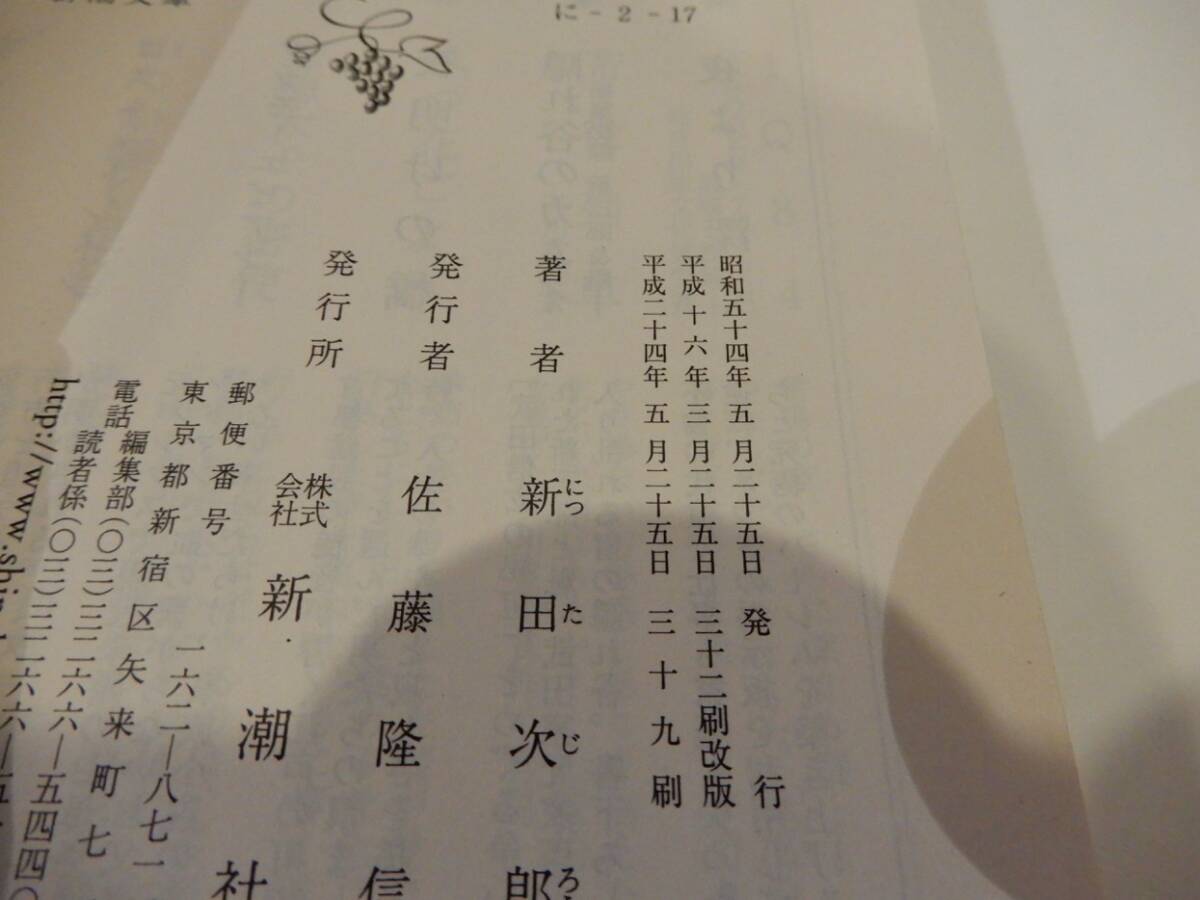 に-2-17
昭和五十四年五月二十五日発行
平成十六年三月二十五日三十二刷改版
平成二十四年五月二十五日三十九刷
著者 新田次郎
にった じろ
発行者 佐藤隆信
発行所 株式会社 新潮社
郵便番号 一六二―八七一
東京都新宿区矢来町七
電話 編集部(〇三)三二六六―五四四〇
読者係(〇三)三二六六―五
http://www.shin